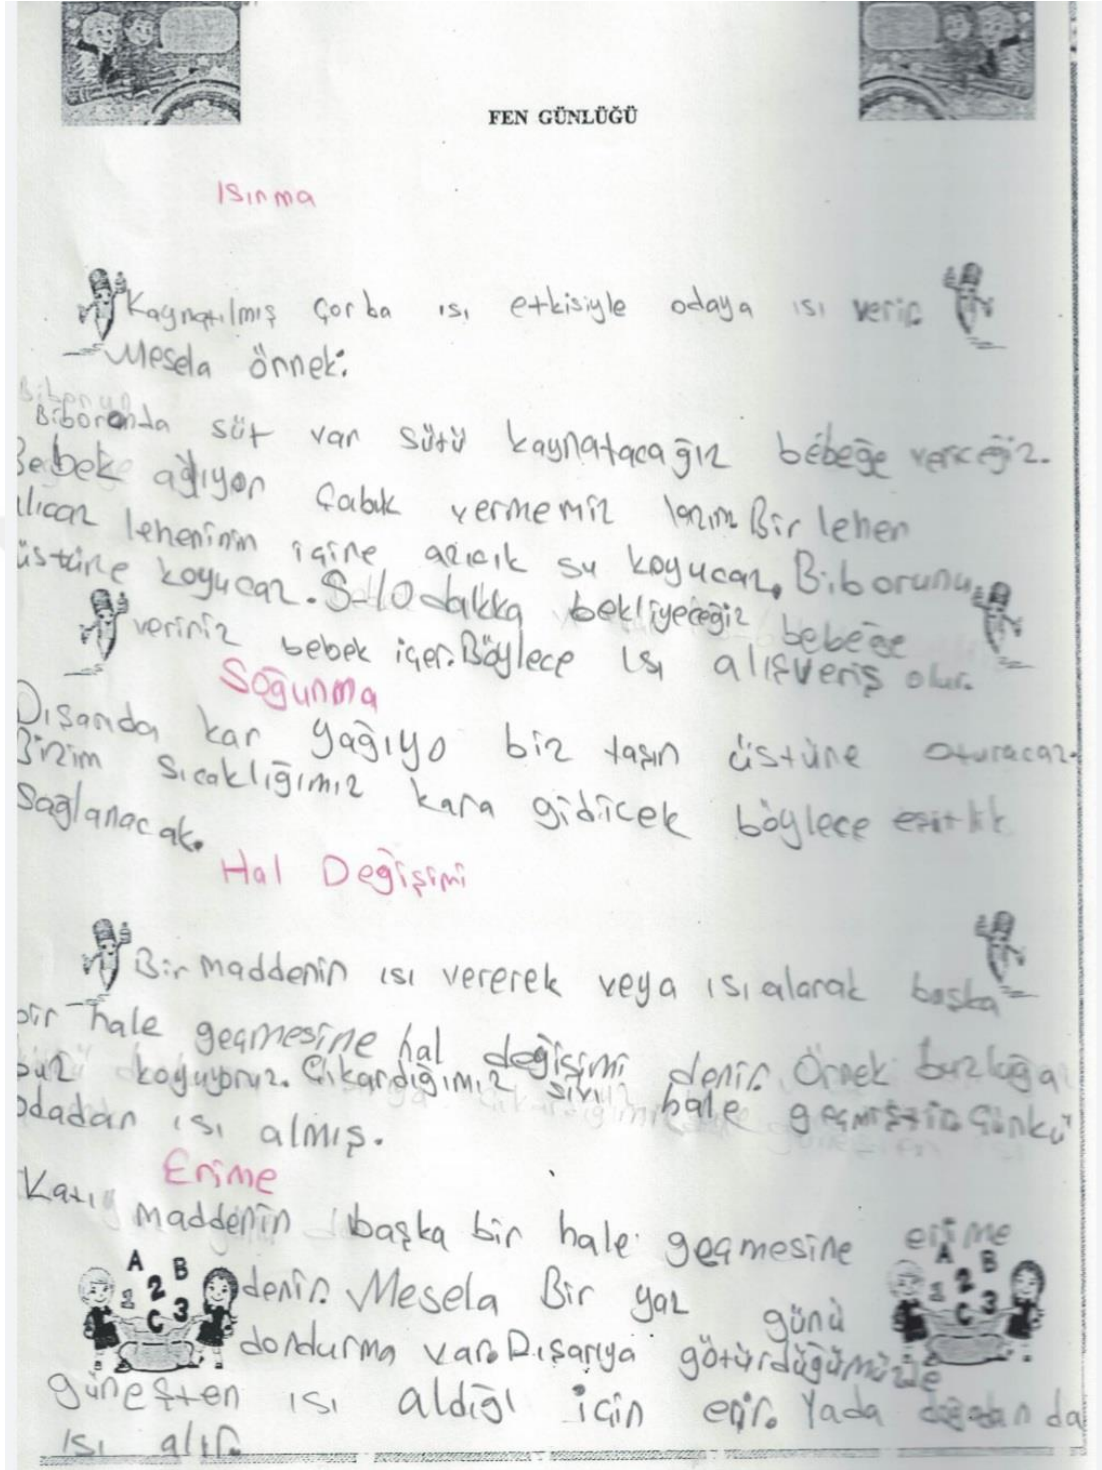 FEN GÜNLÜĞÜ
Isınma
Kaynatılmış Çorba ısı etkisiyle odaya ısı verir.
Mesela örnek:
Biboronda süt var sütü kaynatacağız bebeğe verceğiz.
Bebek ağlıyor Çabuk vermemiz lazım Bir lehen
alıcaz leheninin içine azıcık su koyucaz. Biborunu
üstüne koyucaz. 5-10 dakka bekliyeceğiz bebeğe
veririz bebek içer. Böylece ısı alışveriş olur.
Soğunma
Dışarıda kar yağıyo biz taşın üstüne oturacaz.
Bizim sıcaklığımız kara gidicek böylece eşitlik
Sağlanacak.
Hal Değişimi
Bir maddenin ısı vererek veya ısı alarak başka
bir hale geçmesine hal değişimi denir. Örnek buzluğa
buz koyuyoruz. Çıkardığımız sıvı hale geçmiştir. Çünkü
odadan ısı almış.
Erime
Katı maddenin başka bir hale geçmesine erime
A B
2 2
C 3
A B
2 2
C 3
denir. Mesela Bir yaz günü
dondurma var. Dışarıya götürdüğümüzde
güneşten ısı aldığı için erir. Yada doğadan da
ısı alır.